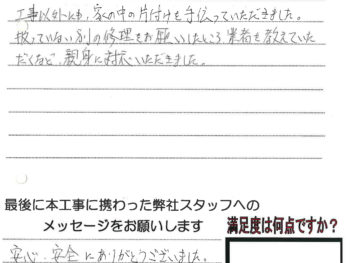 工事以外にも、家の中の片付けも手伝っていただきました。
扱っていない別の修理をお願いしたところ業者を教えていた
だくなど、親身に対応いただきました。
最後に本工事に携わった弊社スタッフへの
メッセージをお願いします
満足度は何点ですか?
安心、安全にありがとうございました。